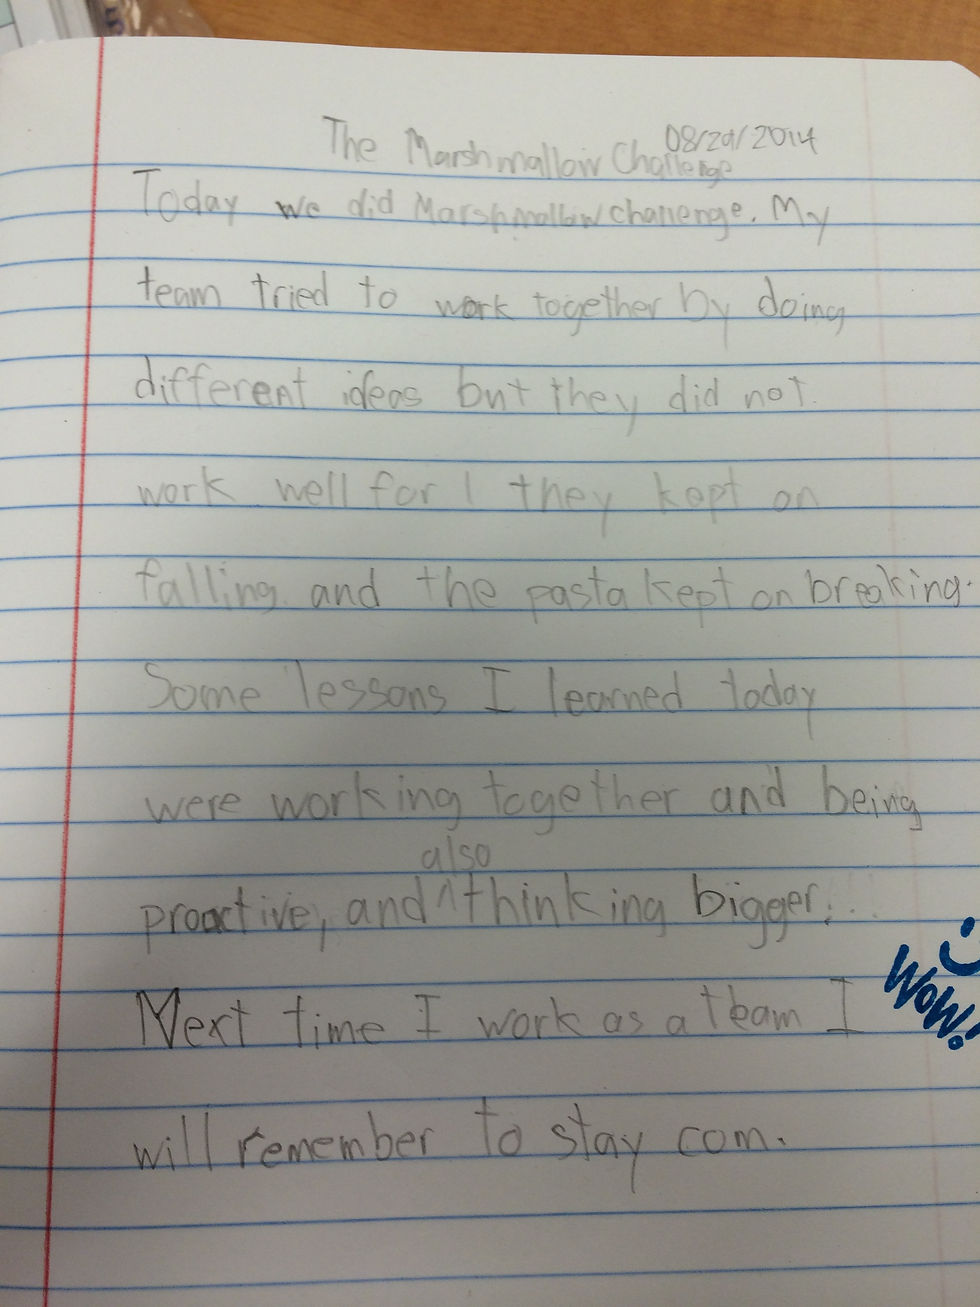 08/29/2014
The Marshmallow Challenge
Today we did Marshmallow challenge. My
team tried to work together by doing
different ideas but they did not
work well for I they kept on
falling and the pasta kept on breaking.
Some lessons I learned today
were working together and being
also
proactive, and ^ thinking bigger.
Next time I work as a team I
WOW!
will remember to stay com.